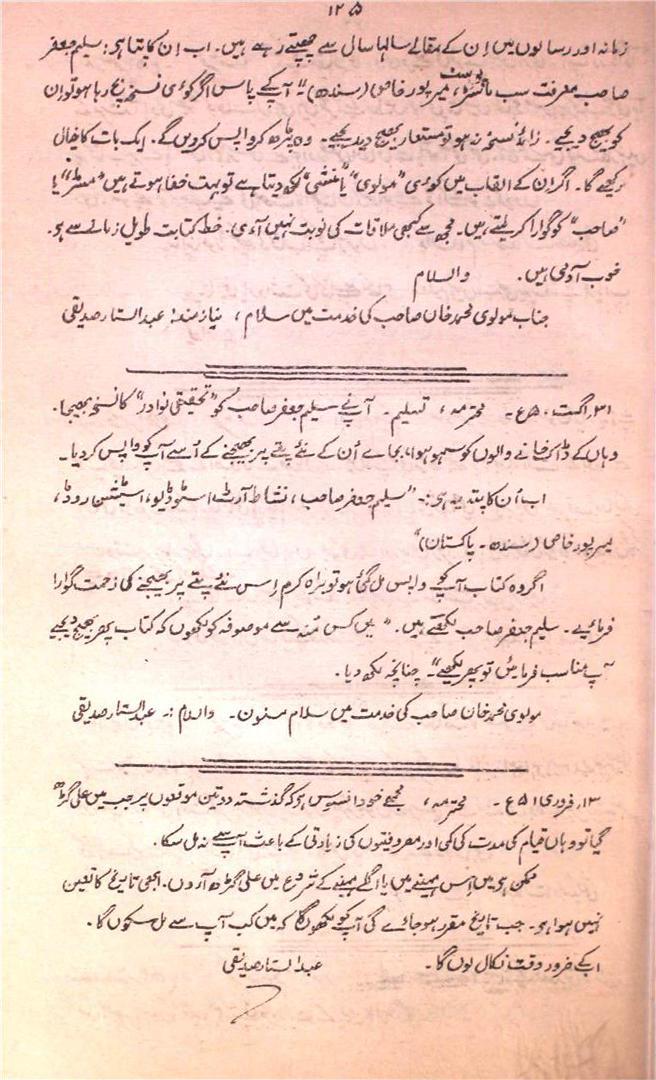 ۱۲۵
زمانہ اور رسالوں میں اِن کے مقالے سالہا سال سے چھپتے رہے ہیں۔ اب اِن کا پتا ہی: سلیم جعفر
صاحب معرفت سب پوسٹ ماسٹر، میرپور خاص (سندھ)"۔ آپکے پاس اگر کوئی نسخہ بچ رہا ہو تو اِن
کو بھیج دیجیے۔ زائد نسخہ نہ ہو تو مستعار بھیج دیجیے۔ وہ پڑھ کر واپس کر دیں گے۔ ایک بات کا خیال
رکھیے گا۔ اگر اِن کے القاب میں کوئی "مولوی" یا "منشی" لکھ دیتا ہے تو بہت خفا ہوتے ہیں "مسٹر" یا
"صاحب" کو گوارا کر لیتے ہیں۔ مجھ سے کبھی ملاقات کی نوبت نہیں آئی۔ خط کتابت طویل زمانے سے ہو۔
خوب آدمی ہیں۔ والسلام
جناب مولوی محمد خان صاحب کی خدمت میں سلام، نیاز مند: عبدالستار صدیقی
۳۱؍ اگست ۵۰ع۔ محترمہ، تسلیم۔ آپ نے سلیم جعفر صاحب کو "تحقیقی نوادر" کا نسخہ بھیجا۔
وہاں کے ڈاک خانے والوں کو سہو ہوا، بجاے اُن کے نئے پتے پر بھیجنے کے اُسے آپ کو واپس کر دیا۔
اب اُن کا پتہ یہ ہی:۔ "سلیم جعفر صاحب، نشاط آرٹ اسٹوڈیو، اسٹیشن روڈ،
میرپور خاص (سندھ۔ پاکستان)"
اگر وہ کتاب آپ کو واپس مل گئی ہو تو براہ کرم اِس نئے پتے پر بھیجنے کی زحمت گوارا
فرمائیے۔ سلیم جعفر صاحب لکھتے ہیں۔ "میں کس مُنہ سے موصوفہ کو لکھوں کہ کتاب پھر بھیج دیجیے
آپ مناسب فرمائیں تو پھر لکھیے"۔ چنانچہ لکھ دیا۔
مولوی محمد خان صاحب کی خدمت میں سلام مسنون۔ والسلام:۔ عبدالستار صدیقی
۱۳؍ فروری ۵۱ع۔ محترمہ، مجھے خود افسوس ہی کہ گذشتہ دو تین موقعوں پر جب میں علی گڑھ
گیا تو وہاں قیام کی مدت کی کمی اور مصروفیتوں کی زیادتی کے باعث آپ سے نہ مل سکا۔
ممکن ہی میں اِس مہینے میں یا اگلے مہینے کے شروع میں علی گڑھ آؤں۔ ابھی تاریخ کا تعین
نہیں ہوا ہی۔ جب تاریخ مقرر ہو جائے گی آپ کو لکھوں گا کہ میں کب آپ سے مل سکوں گا۔
ابکے ضرور وقت نکال لوں گا۔ عبدالستار صدیقی